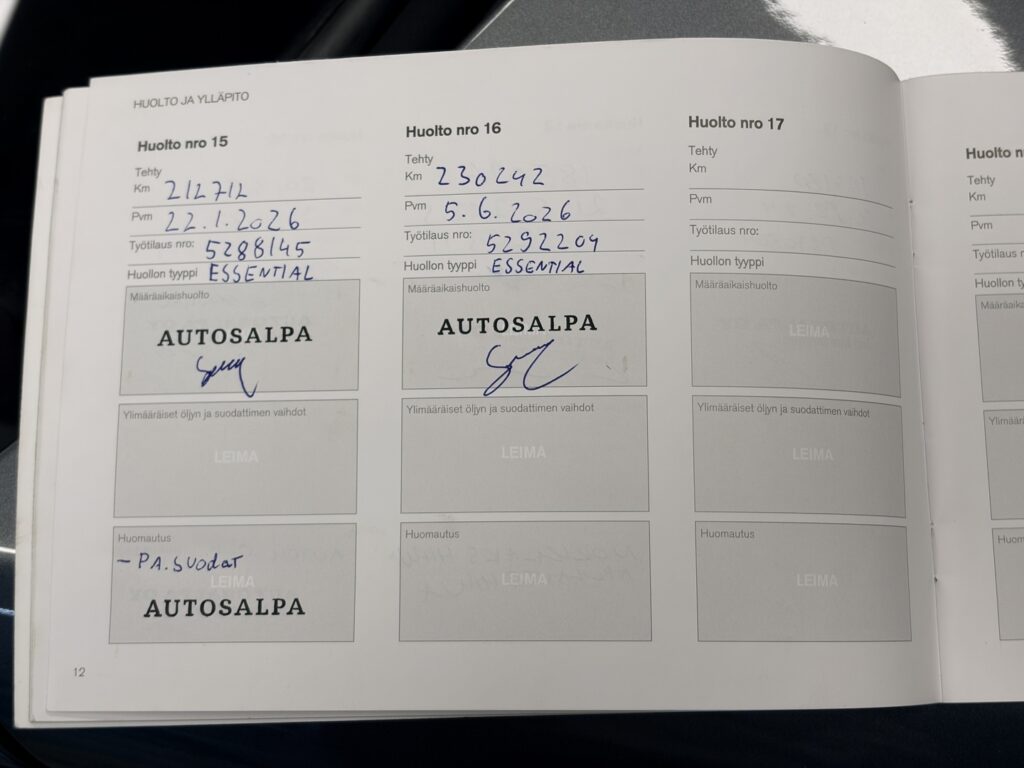 HUOLTO JA YLLÄPITO
Huolto nro 15
Tehty
Km 212712
Pvm 22.1.2026
Työtilaus nro: 5288145
Huollon tyyppi ESSENTIAL
Määräaikaishuolto
AUTOSALPA
Ylimääräiset öljyn ja suodattimen vaihdot
LEIMA
Huomautus
- PA.SUODAT
LEIMA
AUTOSALPA
12
Huolto nro 16
Tehty
Km 230242
Pvm 5.6.2026
Työtilaus nro: 5292204
Huollon tyyppi ESSENTIAL
Määräaikaishuolto
AUTOSALPA
Ylimääräiset öljyn ja suodattimen vaihdot
LEIMA
Huomautus
LEIMA
Huolto nro 17
Tehty
Km
Pvm
Työtilaus nro:
Huollon tyyppi
Määräaikaishuolto
LEIMA
Ylimääräiset öljyn ja suodattimen vaihdot
LEIMA
Huomautus
LEIMA
Huolto
Tehty
Km
Pvm
Työtilaus